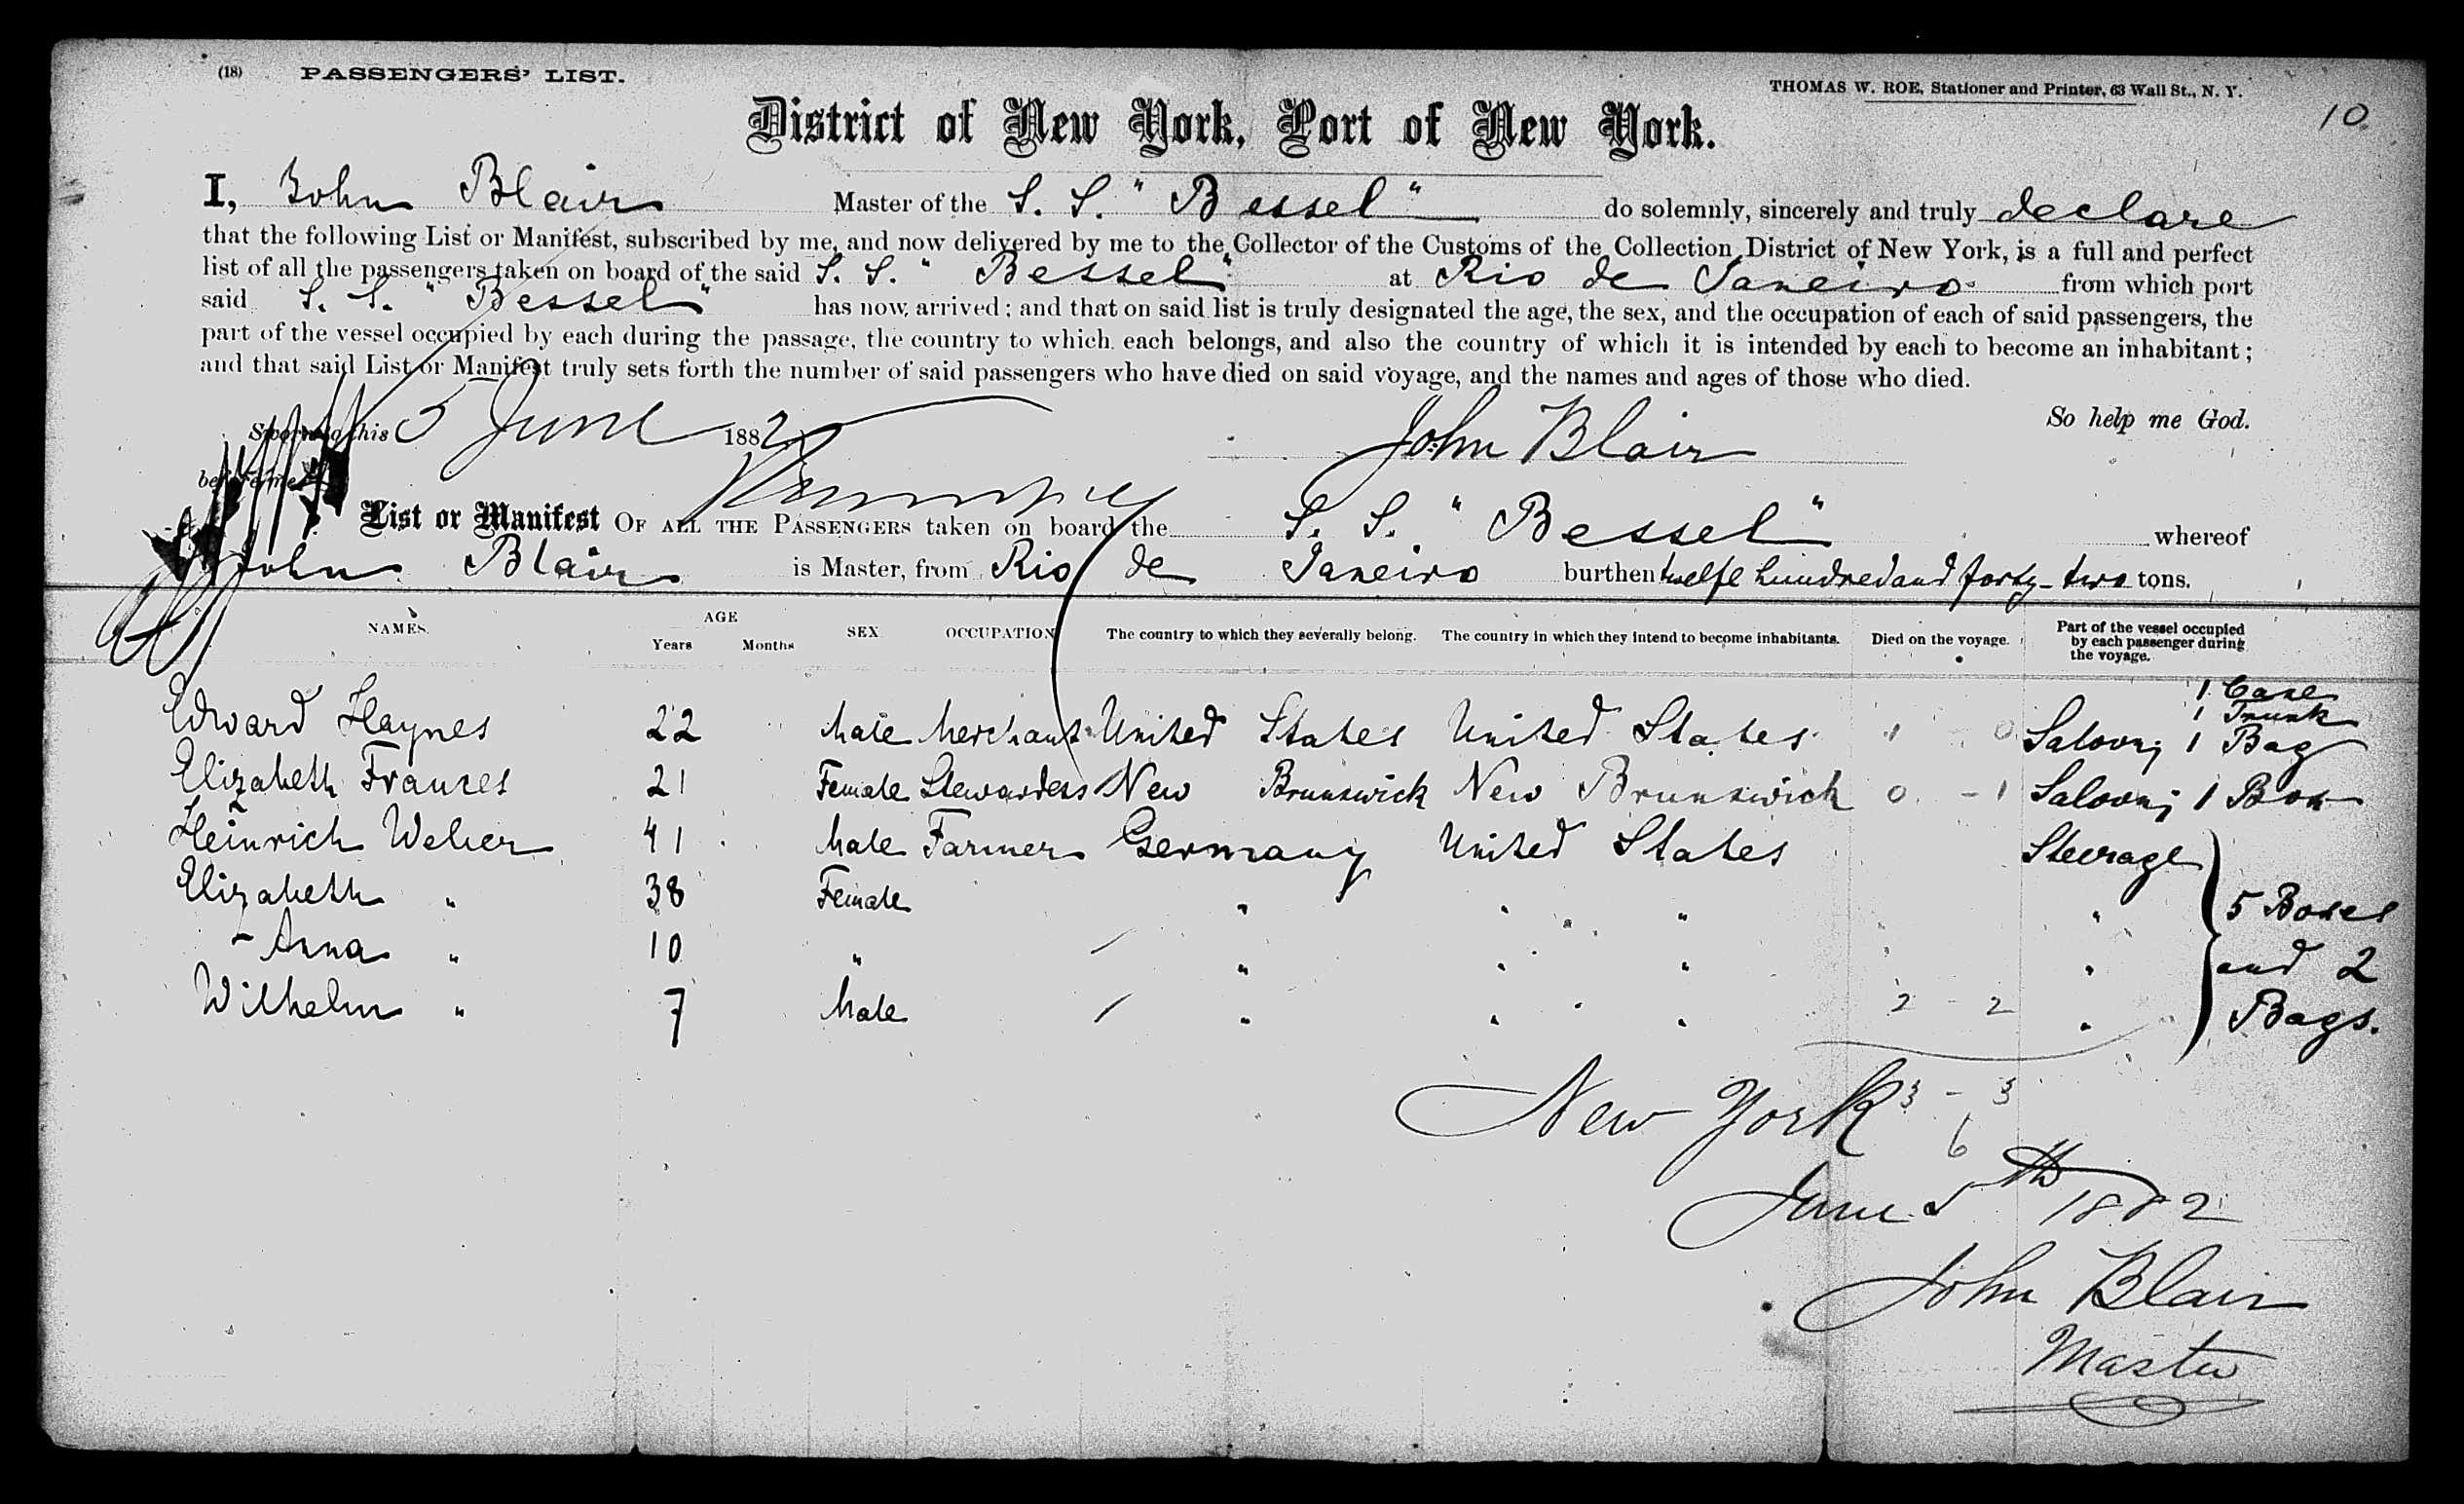 (18) PASSENGERS' LIST.
THOMAS W. ROE, Stationer and Printer, 63 Wall St., N. Y.
10
District of New York, Port of New York.
I, John Blair Master of the S. S. "Bessel" do solemnly, sincerely and truly declare
that the following List or Manifest, subscribed by me, and now delivered by me to the Collector of the Customs of the Collection District of New York, is a full and perfect
list of all the passengers taken on board of the said S. S. "Bessel" at Rio de Janeiro from which port
said S. S. "Bessel" has now arrived; and that on said list is truly designated the age, the sex, and the occupation of each of said passengers, the
part of the vessel occupied by each during the passage, the country to which each belongs, and also the country of which it is intended by each to become an inhabitant;
and that said List or Manifest truly sets forth the number of said passengers who have died on said voyage, and the names and ages of those who died.
So help me God.
Sworn to this 5 June 1882 John Blair
before me
List or Manifest OF ALL THE PASSENGERS taken on board the S. S. "Bessel" whereof
John Blair is Master, from Rio de Janeiro burthen twelfe hundred and forty-two tons.
NAMES. AGE Years Months SEX OCCUPATION The country to which they severally belong. The country in which they intend to become inhabitants. Died on the voyage. Part of the vessel occupied by each passenger during the voyage.
1 Case
1 Trunk
Edward Haynes 22 Male Merchant United States United States 1 - 0 Saloon; 1 Bag
Elizabeth 21 Female Stewardess New Brunswick New Brunswick 0 - 1 Saloon; 1 Box
Heinrich Weber 41 Male Farmer Germany United States Steerage
Elizabeth " 38 Female " " " " 5 Boxes
- Anna " 10 " " " " " and 2
Wilhelm " 7 Male " " " 2 - 2 " Bags.
New York 3 - 3
6
June 5th 1882
John Blair
Master